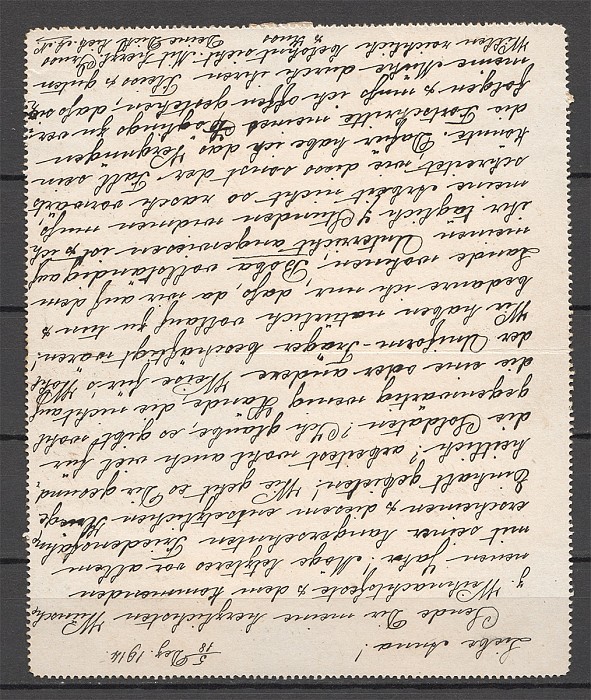 Liebe Anna! 5/18 Dez. 1914.
Sende Dir meine herzlichsten Wünsche
z. Weihnachtsfeste & dem kommenden
neuen Jahr. Möge letzteres vor allem
mit seiner langersehnten Friedensfahne
erscheinen & diesem entsetzlichen Kriege
Einhalt gebieten! Wie geht es Dir gesund-
heitlich? arbeitet wohl auch viel für
die Soldaten? Ich glaube, es gibt wohl
gegenwärtig wenig Hände, die nicht auf
die eine oder andere Weise für's Wohl
der Uniform-Träger beschäftigt wären!
Wir haben natürlich vollauf zu tun &
bedaure ich nur, dass, da wir auf dem
Lande wohnen, Boba vollständig auf
meinen Unterricht angewiesen ist & ich
ihr täglich 4 Stunden widmen muss
meine Arbeit nicht so rasch vorwärts
schreitet, wie dies sonst der Fall sein
könnte. Dafür habe ich das Vergnügen
die Fortschritte meines Zöglings zu ver-
folgen & muss ich offen gestehen, dass
meine Mühe durch ihren Fleiss & guten
Willen reichlich belohnt sieht. Mit herzl. Gruss
& Kuss Deine Dich lieb.